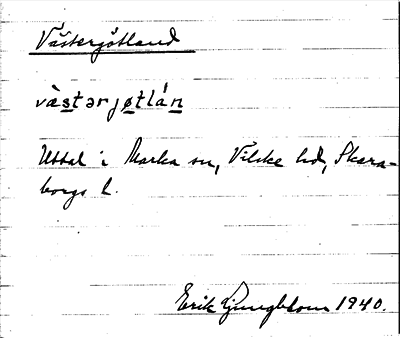 Västergötland
västərjøtlán
Uttal i Marka sn, Vilske hd, Skara-
borgs l.
Erik Ljungblom 1940.